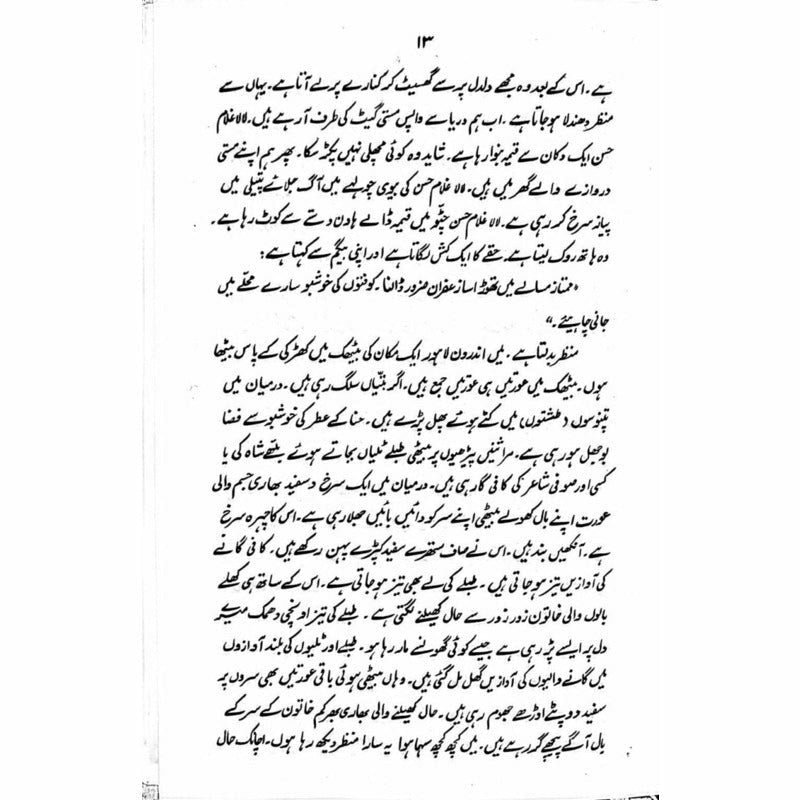 ۱۳
ہے۔ اس کے بعد وہ مجھے دلدل پر سے گھسیٹ کر کنارے پر لے آتا ہے۔ یہاں سے
منظر دھندلا ہو جاتا ہے۔ اب ہم دریا سے واپس مستی گیٹ کی طرف آ رہے ہیں۔ لالا غلام
حسن ایک دکان سے قیمہ بنوا رہا ہے۔ شاید وہ کوئی مچھلی نہیں پکڑ سکا۔ پھر ہم اپنے مستی
دروازے والے گھر میں ہیں۔ لالا غلام حسن کی بیوی چولہے میں آگ جلائے پتیلی میں
پیاز سرخ کر رہی ہے۔ لالا غلام حسن چٹو میں قیمہ ڈالے ہاون دستے سے کوٹ رہا ہے۔
وہ ہاتھ روک لیتا ہے۔ حقے کا ایک کش لگاتا ہے اور اپنی بیگم سے کہتا ہے:
"ممتاز مسالے میں تھوڑا سا زعفران ضرور ڈالنا۔ کوفتوں کی خوشبو سارے محلے میں
جانی چاہیئے۔"
منظر بدلتا ہے۔ میں اندرون لاہور ایک مکان کی بیٹھک میں کھڑکی کے پاس بیٹھا
ہوں۔ بیٹھک میں عورتیں ہی عورتیں جمع ہیں۔ اگر بتیاں سلگ رہی ہیں۔ درمیان میں
تپنوسوں (طشتوں) میں کٹے ہوئے پھل پڑے ہیں۔ حنا کے عطر کی خوشبو سے فضا
بوجھل ہو رہی ہے۔ مراثنیں پیڑھیوں پر بیٹھی طبلے ٹلیاں بجاتے ہوئے بلھے شاہ کی یا
کسی اور صوفی شاعر کی کافی گا رہی ہیں۔ درمیان میں ایک سرخ و سفید بھاری جسم والی
عورت اپنے بال کھولے بیٹھی اپنے سر کو دائیں بائیں ہلا رہی ہے۔ اس کا چہرہ سرخ
ہے۔ آنکھیں بند ہیں۔ اس نے صاف ستھرے سفید کپڑے پہن رکھے ہیں۔ کافی گانے
کی آوازیں تیز ہو جاتی ہیں۔ طبلے کی لے بھی تیز ہو جاتی ہے۔ اس کے ساتھ ہی کھلے
بالوں والی خاتون زور زور سے حال کھیلنے لگتی ہے۔ طبلے کی تیز اونچی دھمک میرے
دل پر ایسے پڑ رہی ہے جیسے کوئی گھونسے مار رہا ہو۔ طبلے اور ٹلیوں کی بلند آوازوں
میں گانے والیوں کی آوازیں گھل مل گئی ہیں۔ وہاں بیٹھی ہوئی باقی عورتیں بھی سروں پر
سفید دوپٹے اوڑھے جھوم رہی ہیں۔ حال کھیلنے والی بھاری بھر کم خاتون کے سر کے
بال آگے پیچھے گر رہے ہیں۔ میں کچھ کچھ سہما ہوا یہ سارا منظر دیکھ رہا ہوں۔ اچانک حال